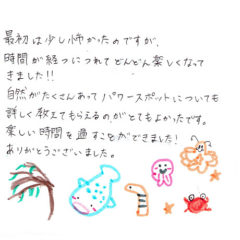 最初は少し怖かったのですが、
時間が経つにつれてどんどん楽しくなって
きました!!
自然がたくさんあってパワースポットについても
詳しく教えてもらえるのがとてもよかったです。
楽しい時間を過すことができました!
ありがとうございました。